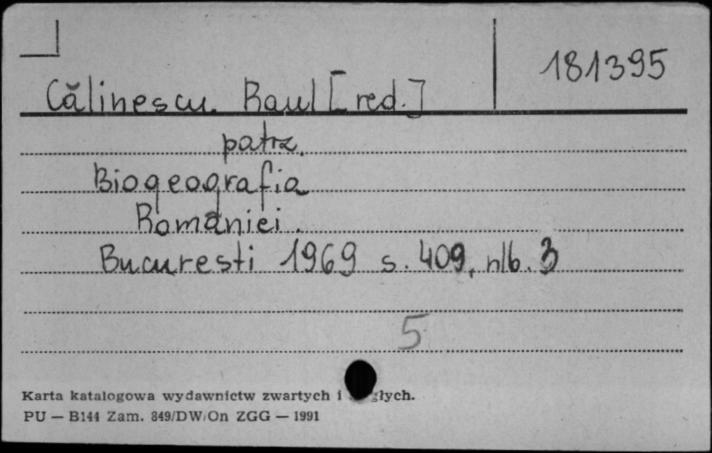 181395
Călinescu Raul [red.]
patrz
Biogeografia
României.
Bucuresti 1969 s. 409, nlb. 3
5
Karta katalogowa wydawnictw zwartych i
PU — B144 Zam. 849/DW/On ZGG — 1991